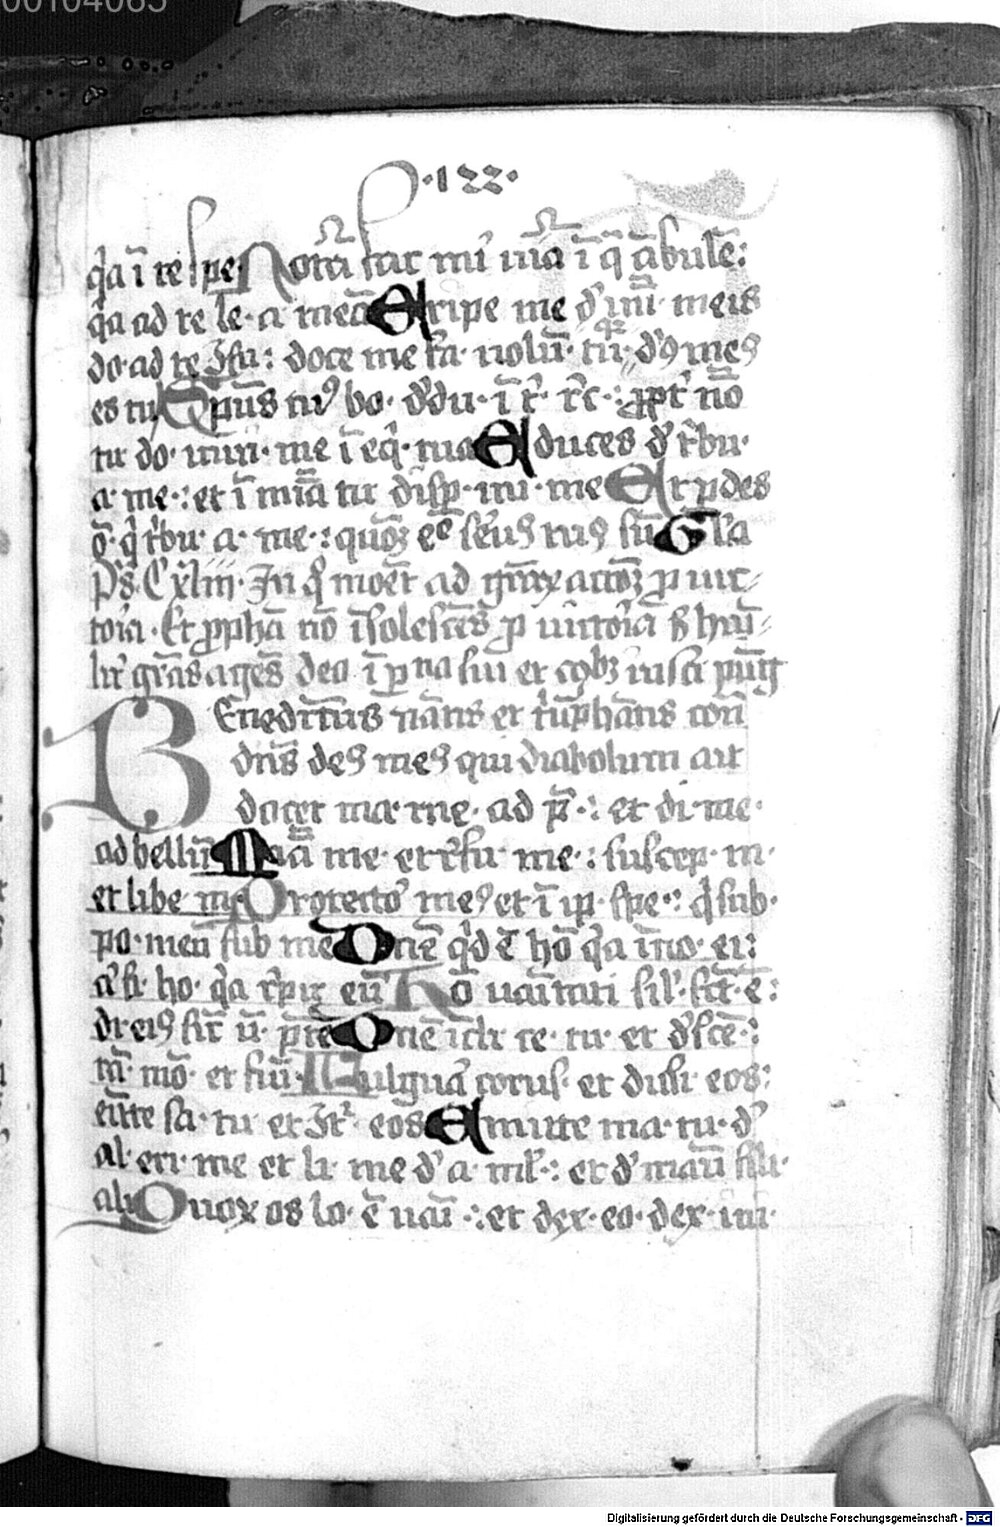 00104085
·122·
q̇a ī te spe· Notā fac mi uiā ī q̄ ābulē:
q̇a ad te le· a meā Eripe me d' inī· meis
do· ad te ɔfu: doce me fa· uolū· tu· d'9 me9
es tu Sp̄us tu9 bo· d'du· ī t'· r'c·: ꝓpt' nō
tu do· uiui· me ī eq̇· tua Educes d' t'bu·
a· me·: et ī mīa tu disp̄· ini· me Et ꝑdes
o̅· q̇ t'bu· a· me·: quō ē seru9 tu9 sū Gl'a
Ps· Cxliii· In q̇ monet ad grāꝝ actōꝫ ꝓ uic
toria· Et ꝓphā nō īsolescēs ꝓ uictoriā
gr̄as agēs deo
Benedictus
dn̄s de9 me9 qui diabolum
docet ma· me· ad p̄·: et di· me·
ad bellū Mīā me· et rēfu· me·: suscep· m·
et libe· me Protecto' me9 et ī ip̄· spe·: q̇ sub·
po· meū sub me Dn̄e q̇d ē hō q̇a īno· ei:
a' fi· ho· q̇a r'pu eū Hō uanitati sil'· fct̄· ē:
di ei9 sic̄ ū· p̄te Dn̄e īcli· ce· tu· et d'scē·:
tā· mō· et fu· Fulgura corus· et disi· eos:
emitte sa· tu· et ɔt' eos Emitte ma· tu· d'
al· eri· me et li· me d' a· ml'·: et d' manū fili·
ali Quoꝝ os lo· ē uaī·: et dex· eo· dex· ini·
Digitalisierung gefördert durch die Deutsche Forschungsgemeinschaft - DFG